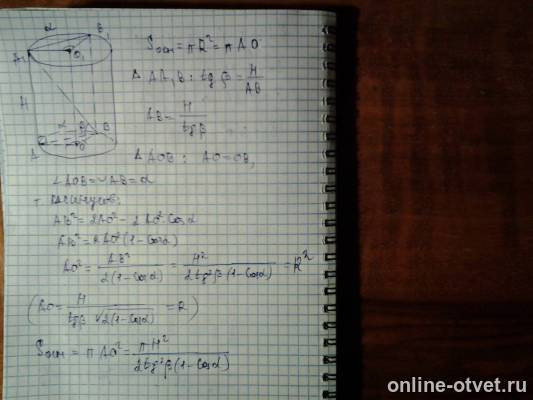 α
B₁
A₁
O₁
H
α
β
B
O
A
Sосн = πR² = πAO
Δ AA₁B: tgβ = H/AB
AB = H/tgβ
Δ AOB: AO=OB,
∠AOB = ◡AB = α
т. косинусов:
AB² = 2AO² - 2AO² cosα
AB² = 2AO²(1-cosα)
AO² = AB²/2(1-cosα) = H²/2tg²β(1-cosα) = R²
(AO = H/tgβ√2(1-cosα) = R)
Sосн = πAO² = πH²/2tg²β(1-cosα)
online-otvet.ru